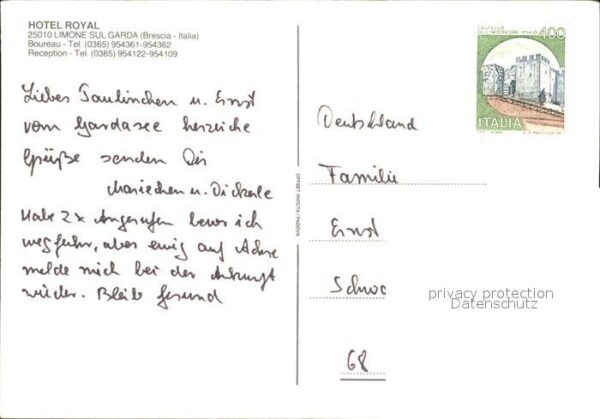 HOTEL ROYAL
25010 LIMONE SUL GARDA (Brescia - Italia)
Boureau - Tel. (0365) 954361-954362
Reception - Tel. (0365) 954122-954109
CASTELLO
DELL'IMPERATORE - PRATO
400
ITALIA
Liebes Paulinchen u. Ernst
vom Gardasee herzliche
Grüße senden Dir
Mariechen u. Dickerle
Habe 2x Angerufen bevor ich
wegfuhr, aber ewig auf Achse
melde mich bei der Ankunft
wieder. Bleib Gesund
OFFSET INVICTA / PADOVA
Deutschland
Familie
Ernst
Schwe
privacy protection
Datenschutz
68